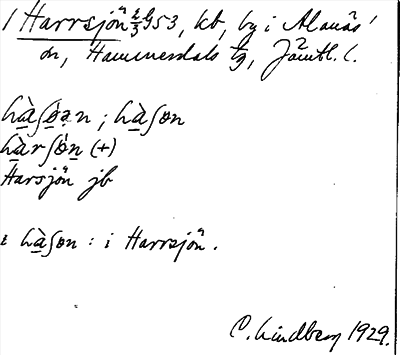 Harrsjön 2/3 G53, kb, by i Alanäs
sn, Hammerdals tg, Jämtl. l.
hàʃøn ; hàʃøn
hàrʃøn (+)
Harsjön jb
i hàʃøn : i Harrsjön.
C. Lindberg 1929.